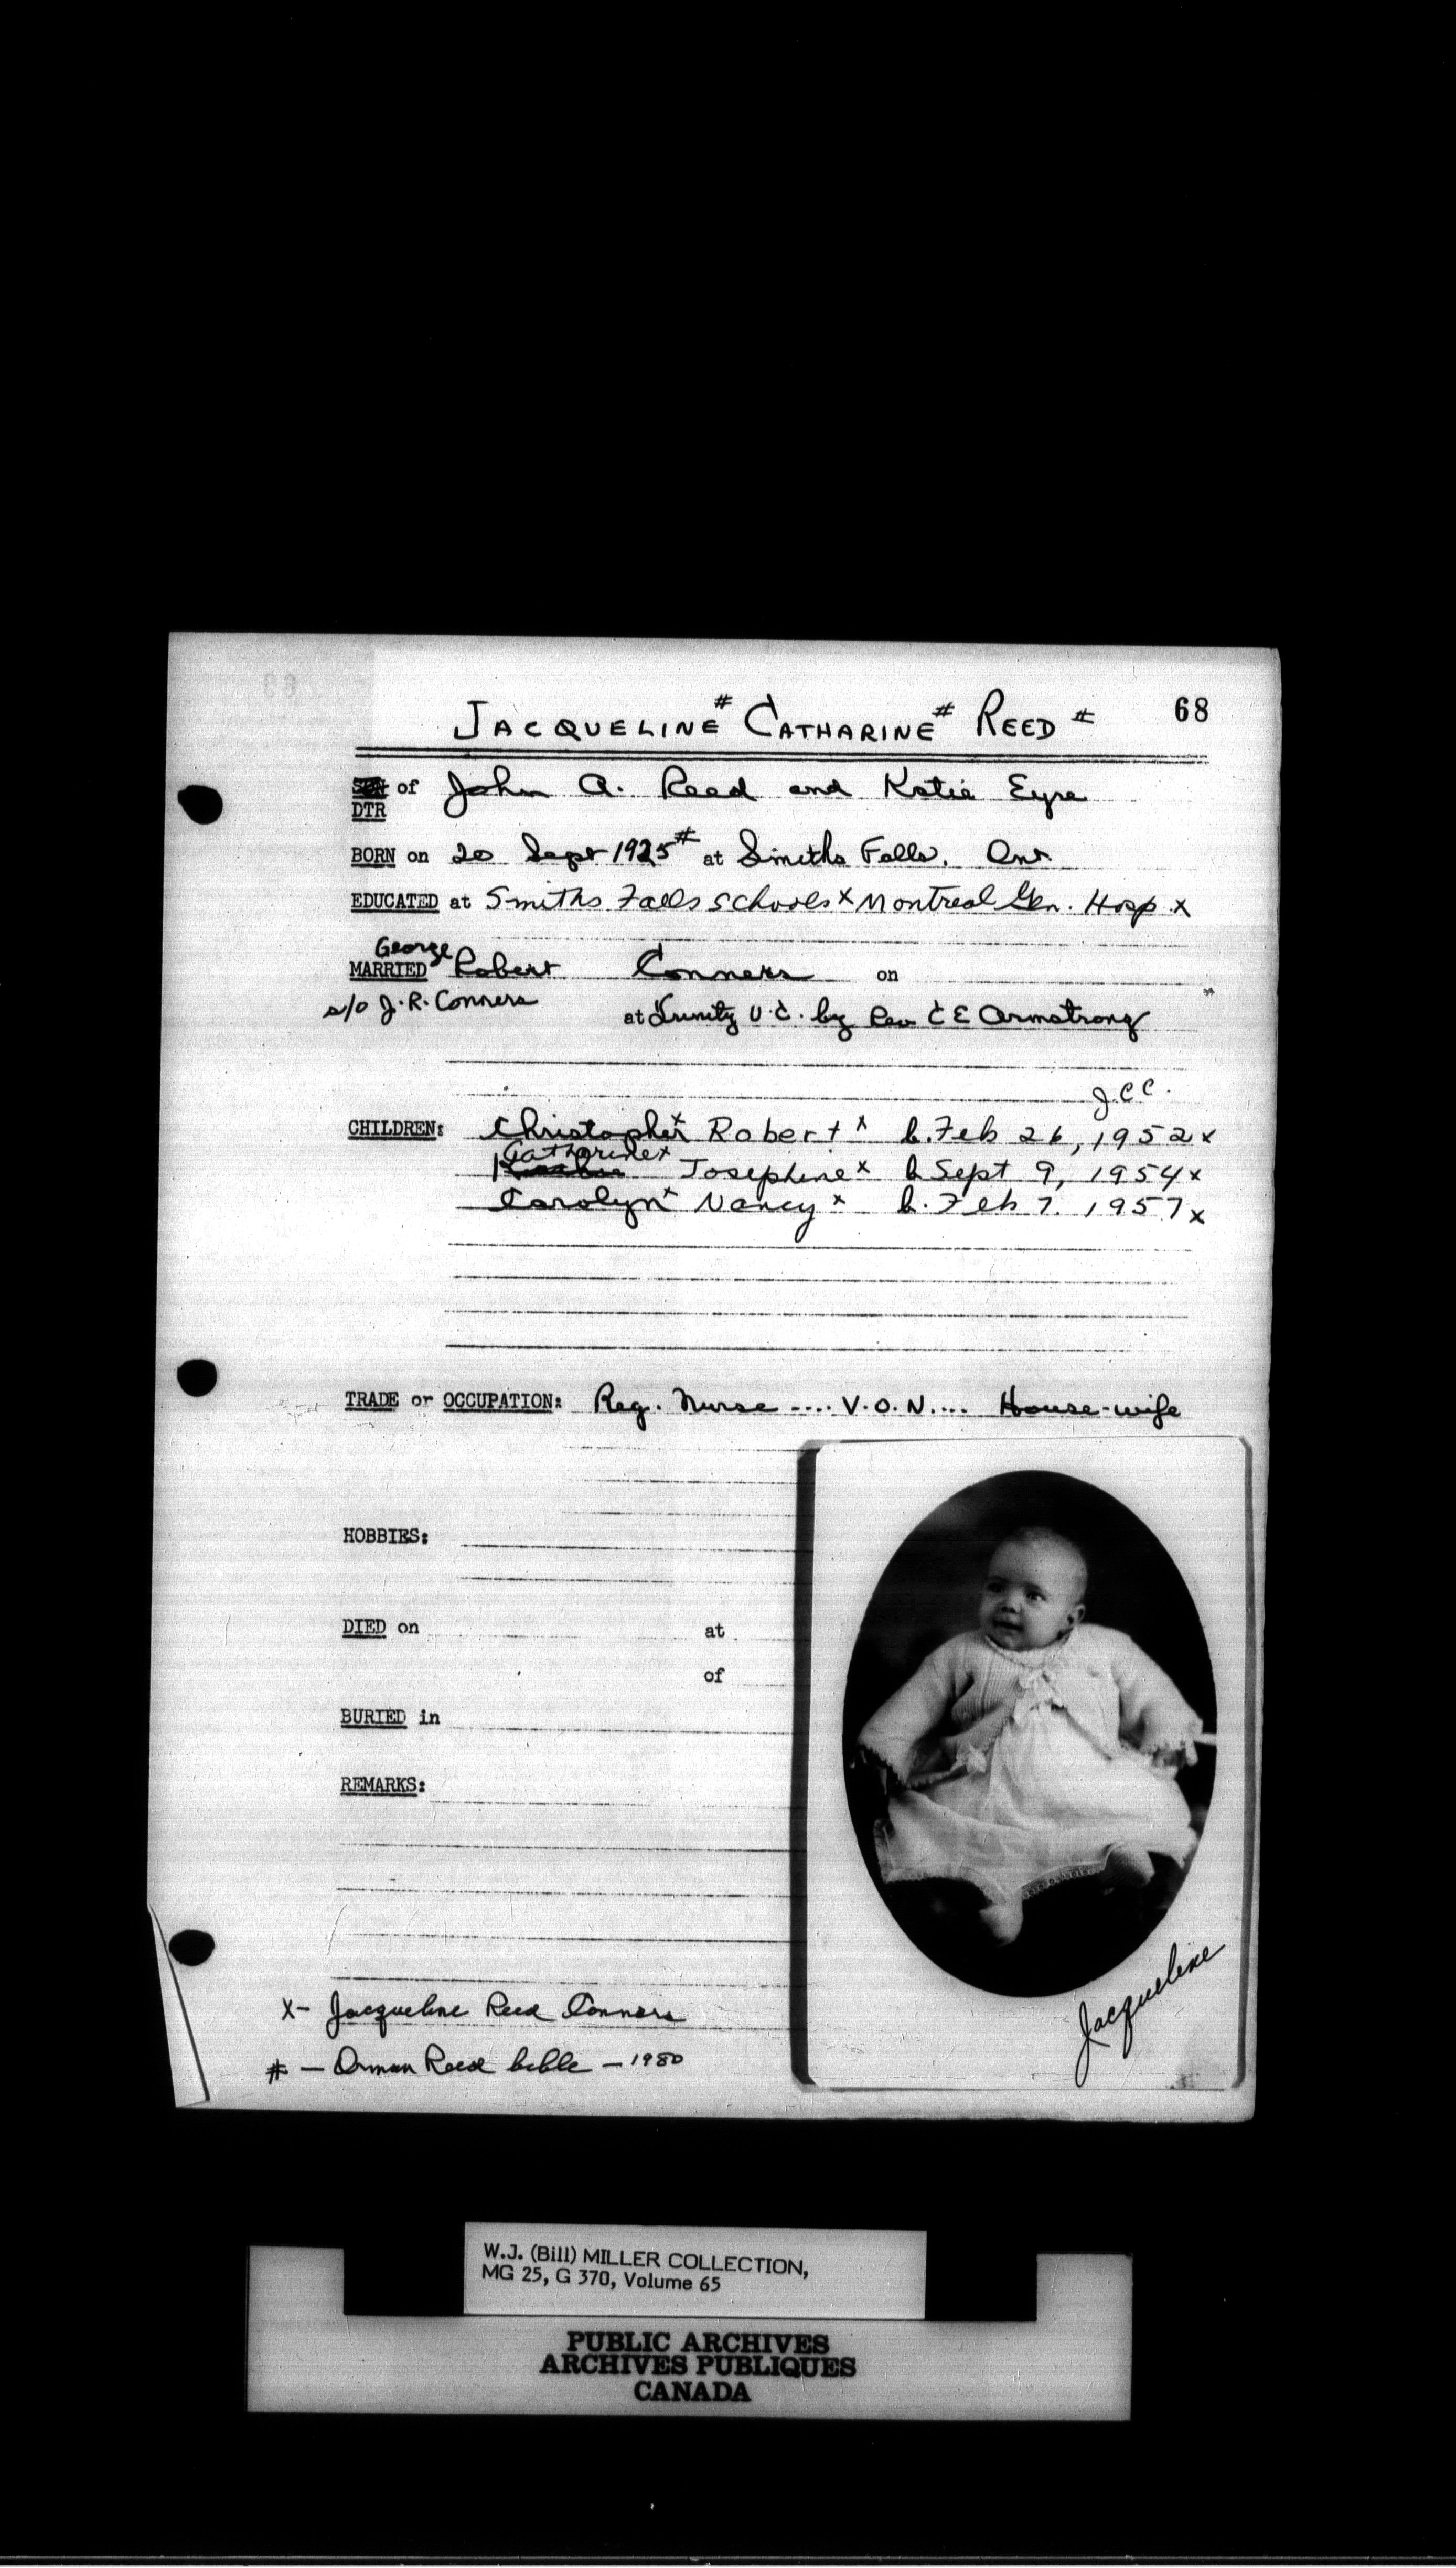 68
JACQUELINE# CATHARINE# REED #
SON of John A. Reed and Katie Eyre
DTR
BORN on 20 Sept 1925# at Smiths Falls, Ont.
EDUCATED at Smiths Falls Schools x Montreal Gen. Hosp. x
George
MARRIED Robert Conners on
s/o J. R. Conners at Trinity U.C. by Rev C E Armstrong
J.C.C.
CHILDREN: Christopher x Robert x b. Feb 26, 1952 x
Catharine x
Josephine x b Sept 9, 1954 x
Carolyn x Nancy x b. Feb 7. 1957 x
TRADE or OCCUPATION: Reg. Nurse .... V.O.N.... House-wife
HOBBIES:
DIED on at
of
BURIED in
REMARKS:
Jacqueline
x- Jacqueline Reed Conners
# — Orman Reed bible — 1980
W.J. (Bill) MILLER COLLECTION,
MG 25, G 370, Volume 65
PUBLIC ARCHIVES
ARCHIVES PUBLIQUES
CANADA